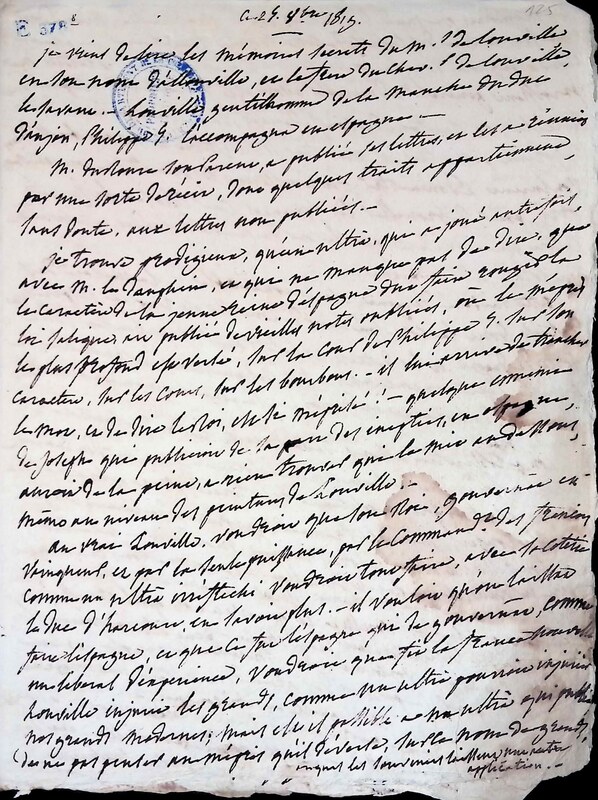 ce 29. 8bre 1819.
125
378
je viens de lire les mémoires secrets du m.is de Louville
en son nom d'allonville, et le frere du chev.r de Louville,
le savant. - Louville gentilhomme de la manche du duc
d'anjou, Philippe 5. l'accompagna en espagne -
M. son parent, a publié ses lettres, et les a réunies
par une sorte de récit, dont quelques traits appartiennent,
sans doute, aux lettres non publiées. -
je trouve prodigieux, qu'un ultra, qui a joué autrefois,
avec M. le dauphin, ce qui ne manque pas de dire, que
le caractère de la jeune reine d'espagne dut faire la
loi salique, ait publié de vieilles notes oubliées, où le mépris
le plus profond est versé, sur la cour de Philippe 5. sur son
caractère, sur les cours, sur les bourbons. - il lui arrive de trancher
le mot, et de dire le roi, est le méprisé ! - quelque ennemie
de joseph que publicion de la des inepties, en espagne,
auroit de la peine, a rien trouver qui le mit au dessous,
même au niveau des peintures de Louville. -
au vrai Louville, voudroit que son Roi, gouvernée en
vainqueur, et par la seule puissance, par le Commande des françois
comme un ultra irréfléchi voudroit tout faire, avec sa coterie
le Duc d'harcourt, en savoit plus. - il vouloit qu'on laissât
faire l'espagne, ce que ce fut l'espagne qui la gouvernée, comme
un liberal d'experience, voudroit que fit la france nouvelle
Louville injurie les grands, comme un ultra pourroit injurier
nos grands modernes; mais est il possible a un ultra qui publie
de ne pas penser au mépris qu'il déverse, sur le nom de grands,
auquel les souvenirs laissent une autre
application. -